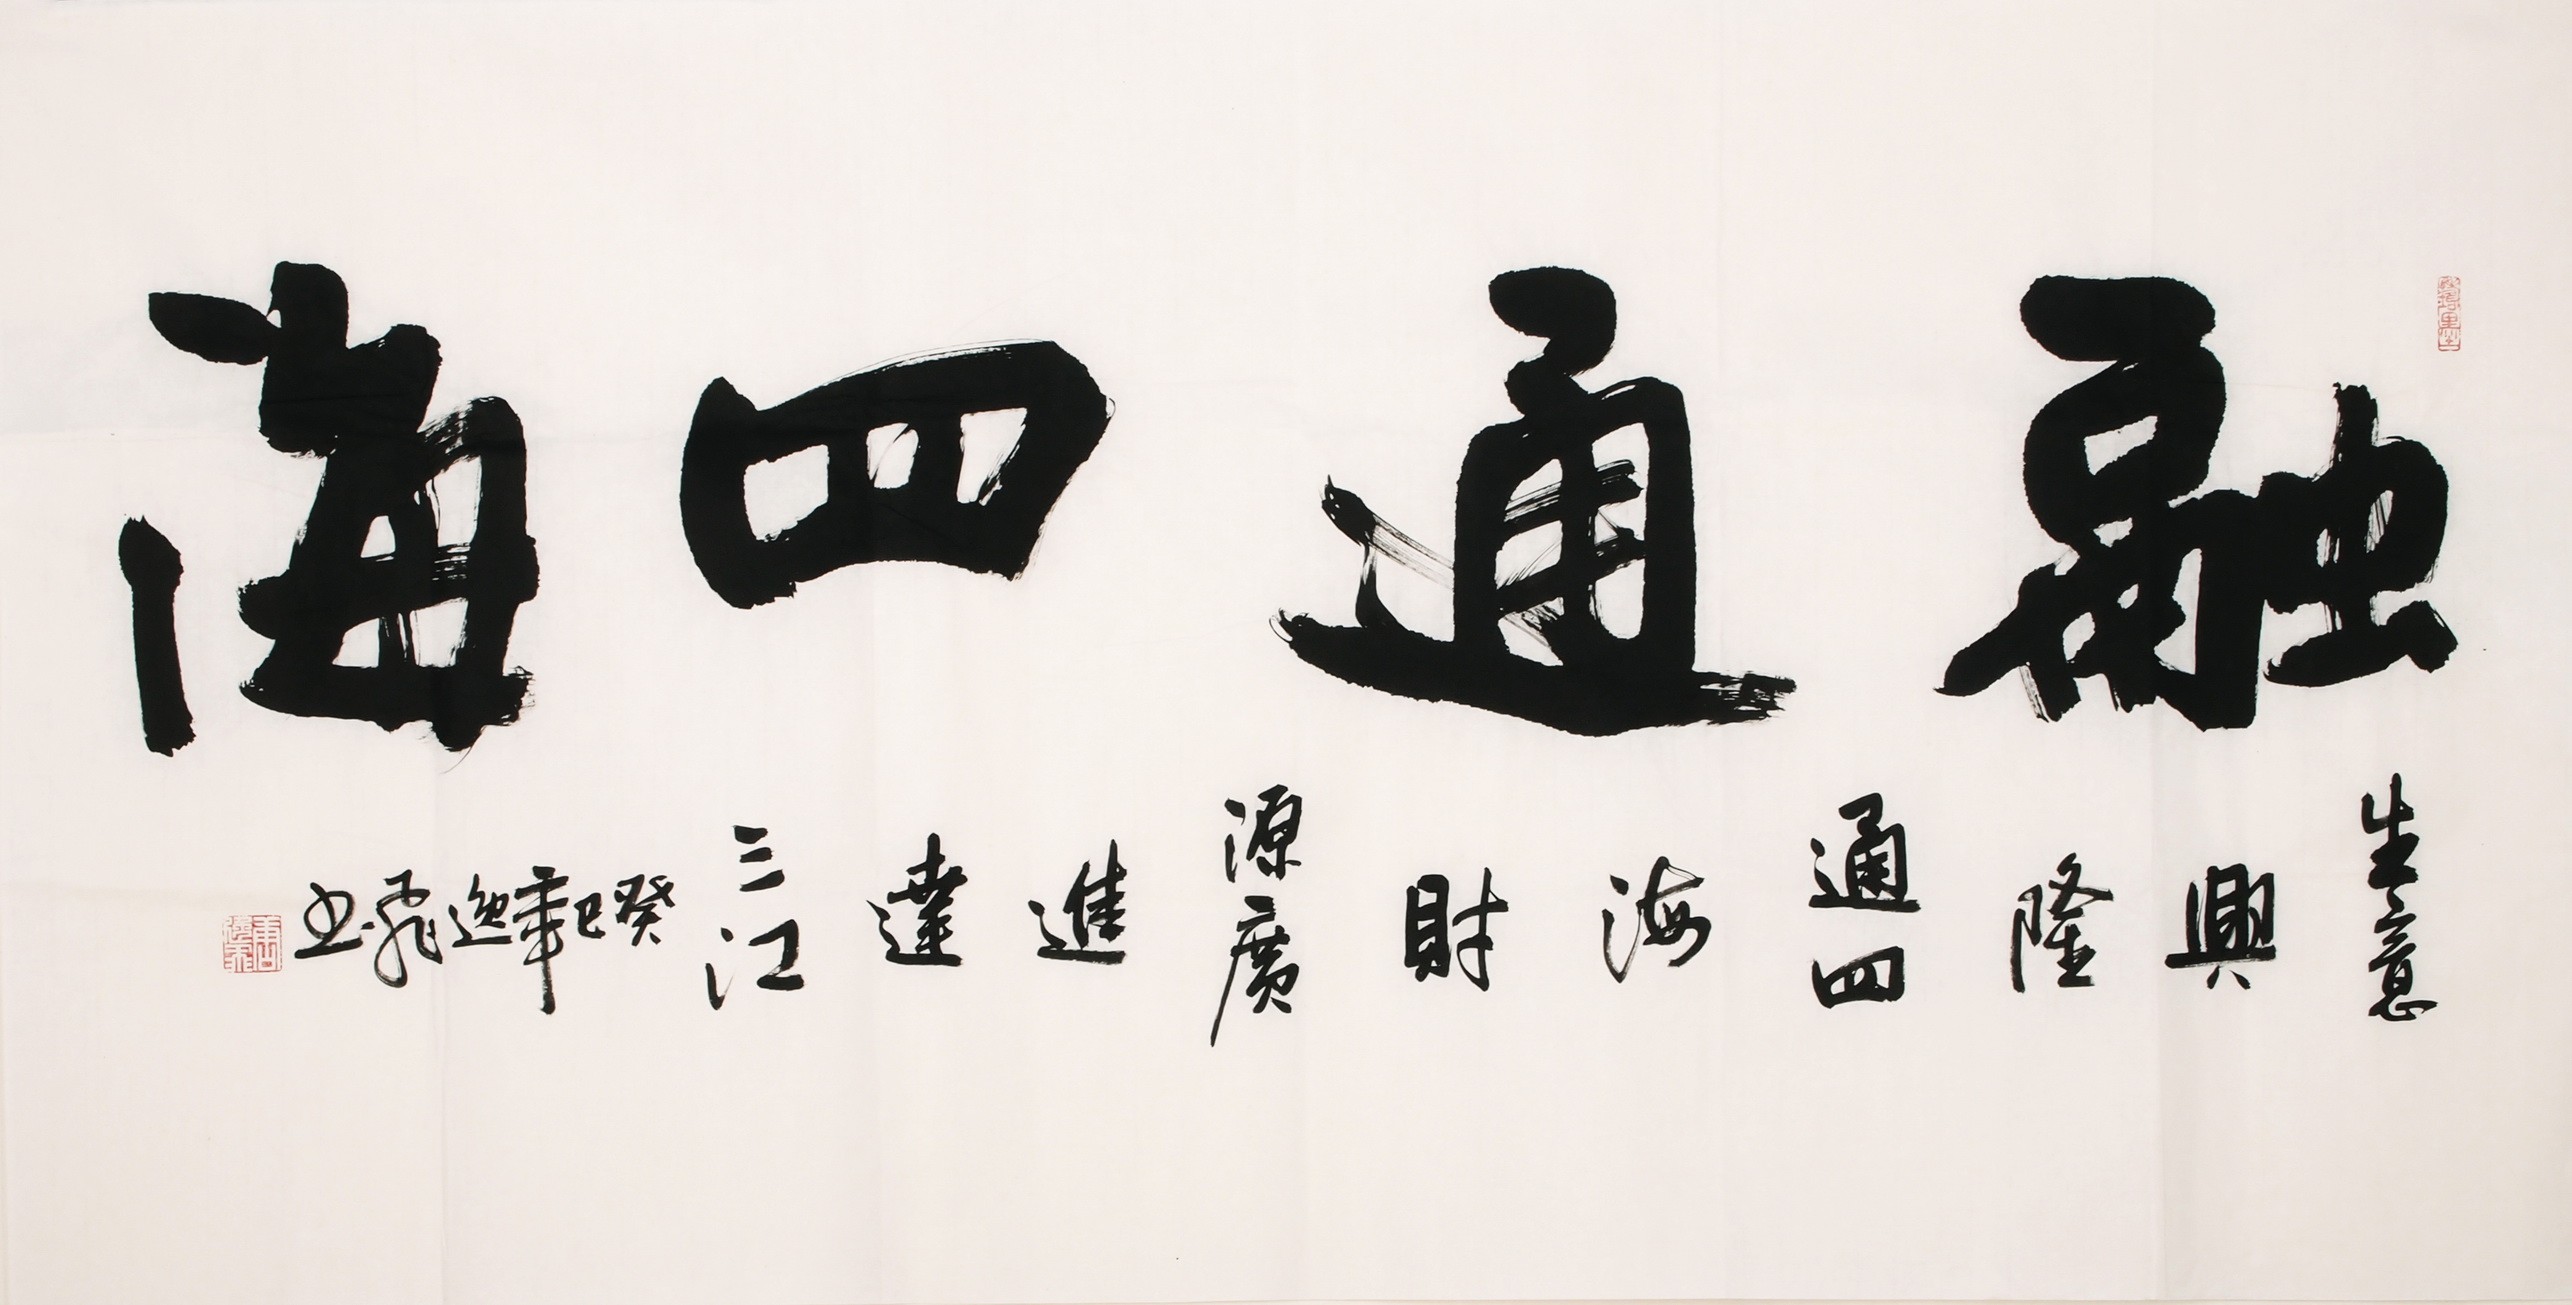 融通四海
生意興隆通四海財源廣進達三江
癸巳年逸飛书